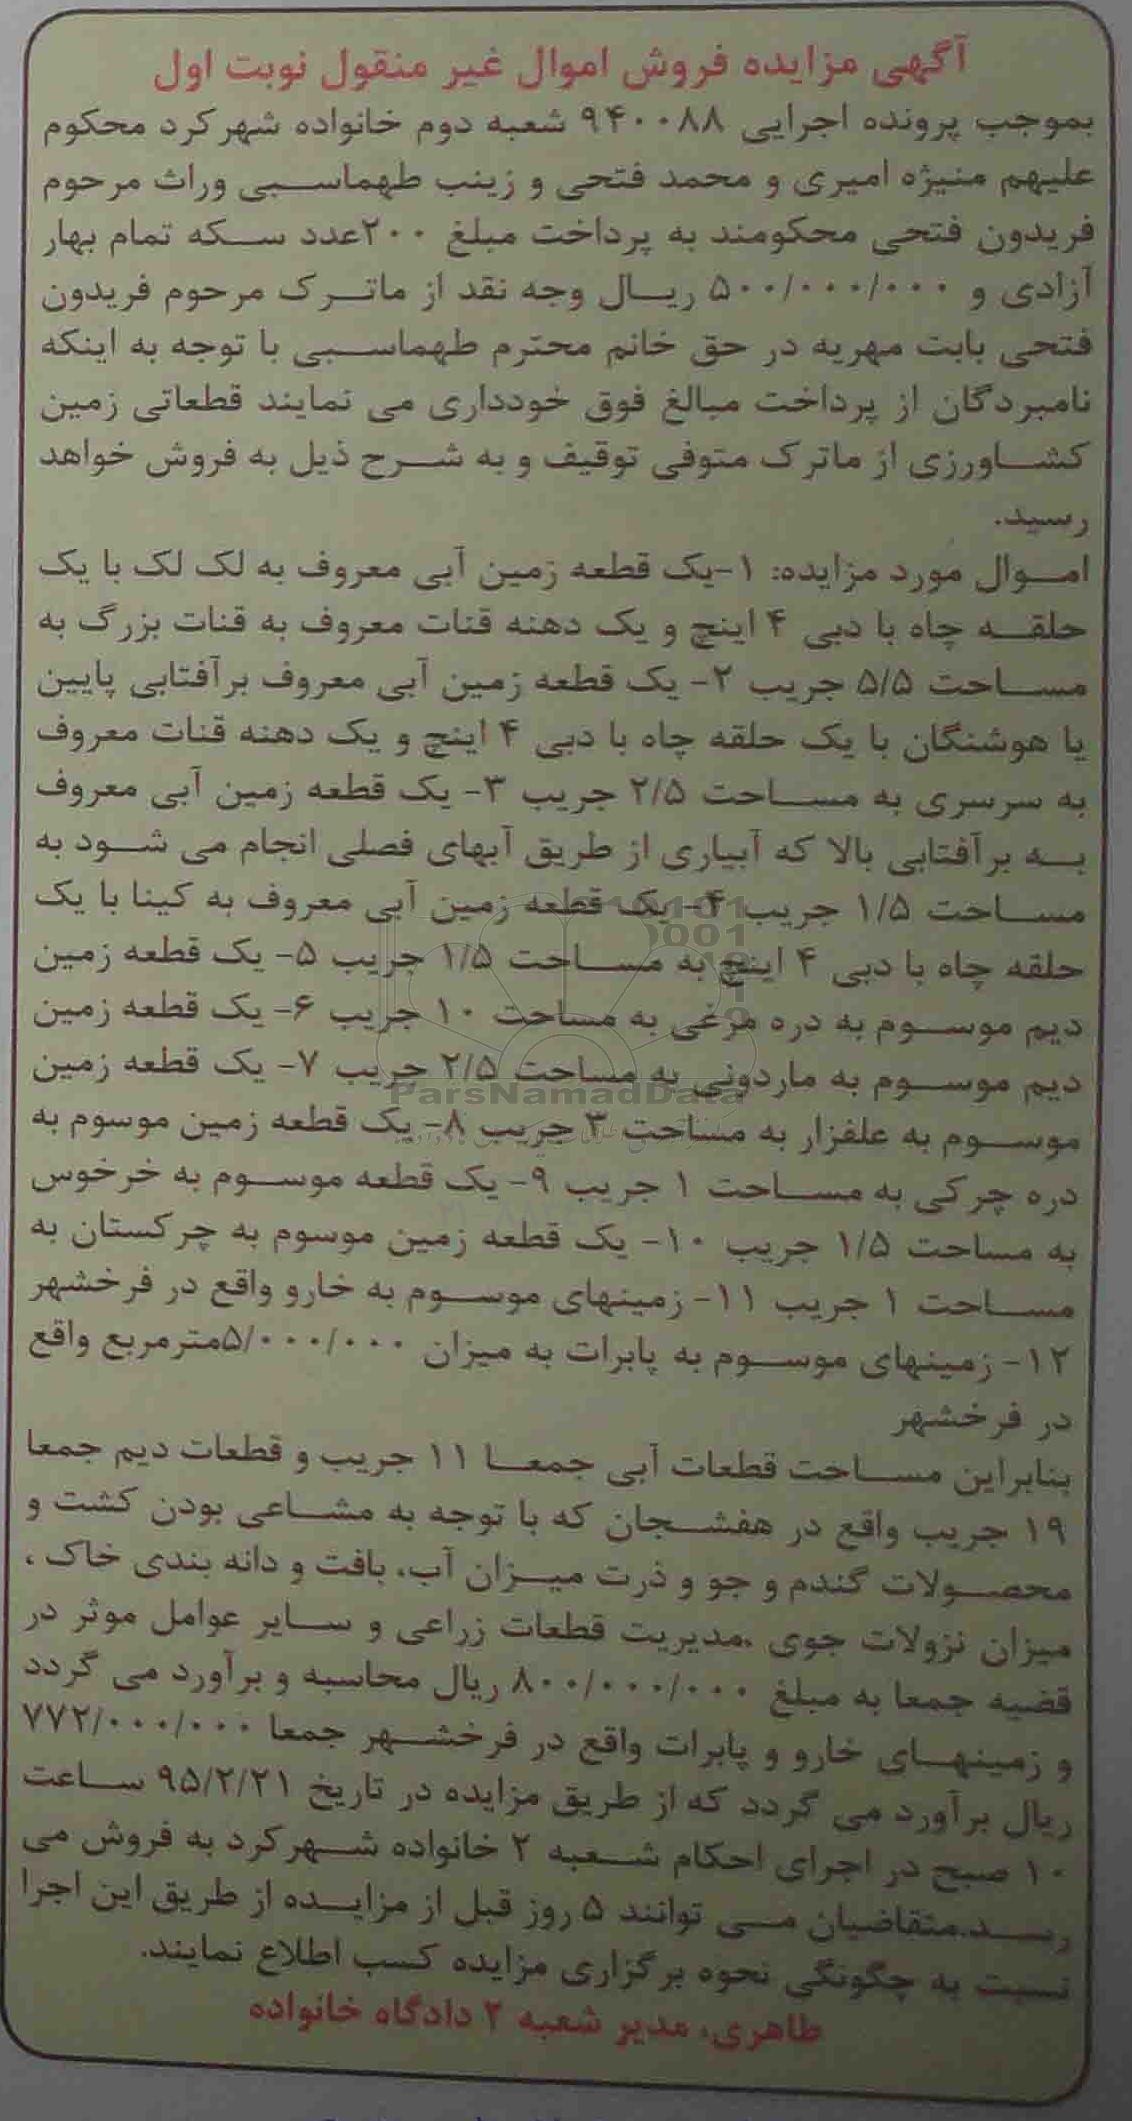 آگهی مزایده فروش اموال غیر منقول نوبت اول
بموجب پرونده اجرایی ۹۴۰۰۸۸ شعبه دوم خانواده شهرکرد محکوم
علیهم منیژه امیری و محمد فتحی و زینب طهماسبی وراث مرحوم
فریدون فتحی محکومند به پرداخت مبلغ ۲۰۰عدد سکه تمام بهار
آزادی و ۵۰۰/۰۰۰/۰۰۰ ریال وجه نقد از ماترک مرحوم فریدون
فتحی بابت مهریه در حق خانم محترم طهماسبی با توجه به اینکه
نامبردگان از پرداخت مبالغ فوق خودداری می نمایند قطعاتی زمین
کشاورزی از ماترک متوفی توقیف و به شرح ذیل به فروش خواهد
رسید.
اموال مورد مزایده: ۱-یک قطعه زمین آبی معروف به لک لک با یک
حلقه چاه با دبی ۴ اینچ و یک دهنه قنات معروف به قنات بزرگ به
مساحت ۵/۵ جریب ۲- یک قطعه زمین آبی معروف برآفتابی پایین
یا هوشنگان با یک حلقه چاه با دبی ۴ اینچ و یک دهنه قنات معروف
به سرسری به مساحت ۲/۵ جریب ۳- یک قطعه زمین آبی معروف
به برآفتابی بالا که آبیاری از طریق آبهای فصلی انجام می شود به
مساحت ۱/۵ جریب ۴- یک قطعه زمین آبی معروف به کینا با یک
حلقه چاه با دبی ۴ اینچ به مساحت ۱/۵ جریب ۵- یک قطعه زمین
دیم موسوم به دره مرغی به مساحت ۱۰ جریب ۶- یک قطعه زمین
دیم موسوم به ماردونی به مساحت ۲/۵ جریب ۷- یک قطعه زمین
ParsNamadData
موسوم به علفزار به مساحت ۳ جریب ۸- یک قطعه زمین موسوم به
دره چرکی به مساحت ۱ جریب ۹- یک قطعه موسوم به خرخوس
به مساحت ۱/۵ جریب ۱۰- یک قطعه زمین موسوم به چرکستان به
مساحت ۱ جریب ۱۱- زمینهای موسوم به خارو واقع در فرخشهر
۱۲- زمینهای موسوم به پابرات به میزان ۵/۰۰۰/۰۰۰مترمربع واقع
در فرخشهر
بنابراین مساحت قطعات آبی جمعا ۱۱ جریب و قطعات دیم جمعا
۱۹ جریب واقع در هفشجان که با توجه به مشاعی بودن کشت و
محصولات گندم و جو و ذرت میزان آب، بافت و دانه بندی خاک ،
میزان نزولات جوی ،مدیریت قطعات زراعی و سایر عوامل موثر در
قضیه جمعا به مبلغ ۸۰۰/۰۰۰/۰۰۰ ریال محاسبه و برآورد می گردد
و زمینهای خارو و پابرات واقع در فرخشهر جمعا ۷۷۲/۰۰۰/۰۰۰
ریال برآورد می گردد که از طریق مزایده در تاریخ ۹۵/۲/۲۱ ساعت
۱۰ صبح در اجرای احکام شعبه ۲ خانواده شهرکرد به فروش می
رسد.متقاضیان می توانند ۵ روز قبل از مزایده از طریق این اجرا
نسبت به چگونگی نحوه برگزاری مزایده کسب اطلاع نمایند.
طاهری، مدیر شعبه ۲ دادگاه خانواده